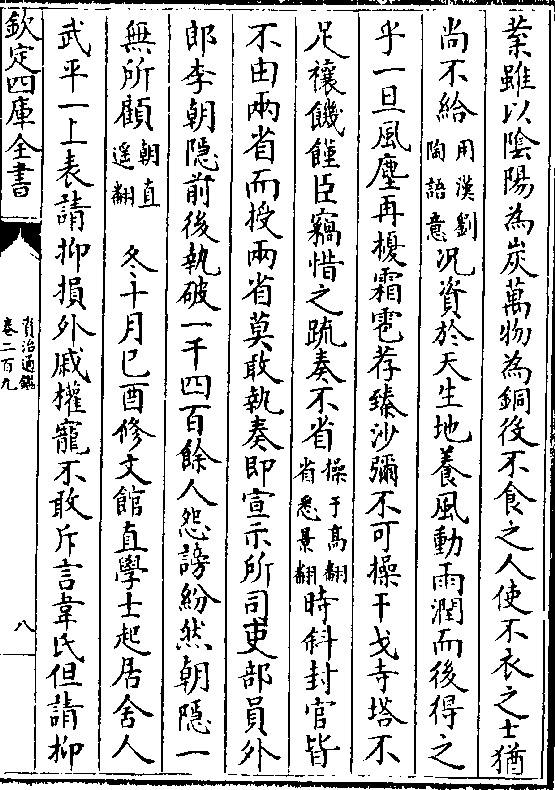 業雖以陰陽為炭萬物為銅役不食之人使不衣之士猶
尚不給用漢劉陶語意況資於天生地養風動雨潤而後得之
乎一旦風塵再擾霜雹荐臻沙彌不可操干戈寺塔不
足禳饑饉臣竊惜之疏奏不省操于高翻省悉景翻時斜封官皆
不由兩省而授兩省莫敢執奏即宣示所司吏部員外
郎李朝隱前後執破一千四百餘人怨謗紛然朝隱一
無所顧朝直遥翻 冬十月己酉修文館直學士起居舍人
武平一上表請抑損外戚權寵不敢斥言韋氏但請抑
欽定四庫全書
資治通鑑
卷二百九
八